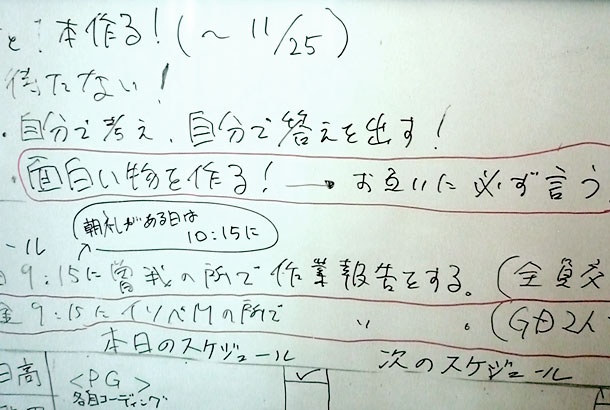 と！本作る！(～11/25)
待たない！
・自分で考え、自分で答えを出す！
・面白い物を作る！→お互いに必ず言う
朝礼がある日は
10:15に
ール
9:15に曽我の所で作業報告をする。(全員交
金 9:15にイソベMの所で 〃 。(GD2人
本日のスケジュール 次のスケジュール
日高 <PG>
各自コーディング